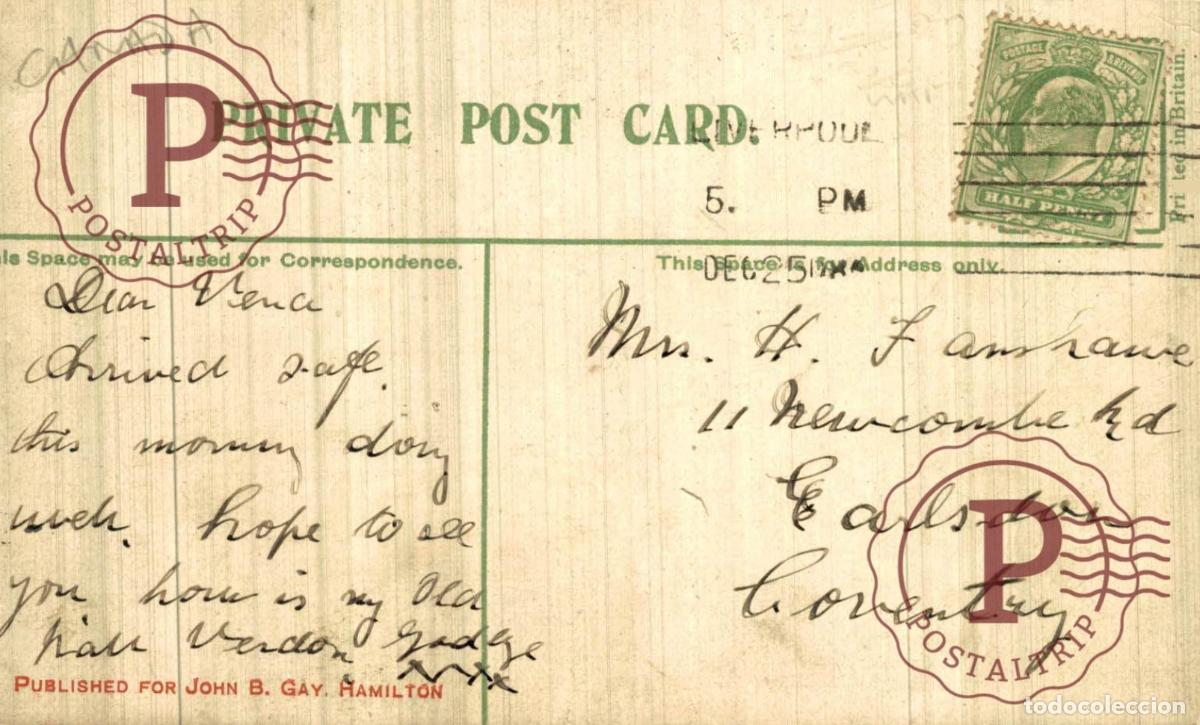 CANADA
PRIVATE POST CARD.
POSTAGE REVENUE
HALF PENNY
Printed in Britain.
LIVERPOOL
5. PM
DEC 25
This Space may be used for Correspondence.
This Space is for Address only.
Dear Vera
Arrived safe.
this morning doing
well. hope to see
you how is my Old
Verdon
xxxx
Mrs. H. Fanshawe
11 Newcombe Rd
Earlsdon
Coventry
PUBLISHED FOR JOHN B. GAY. HAMILTON
P
POSTALTRIP
P
POSTALTRIP
todocoleccion